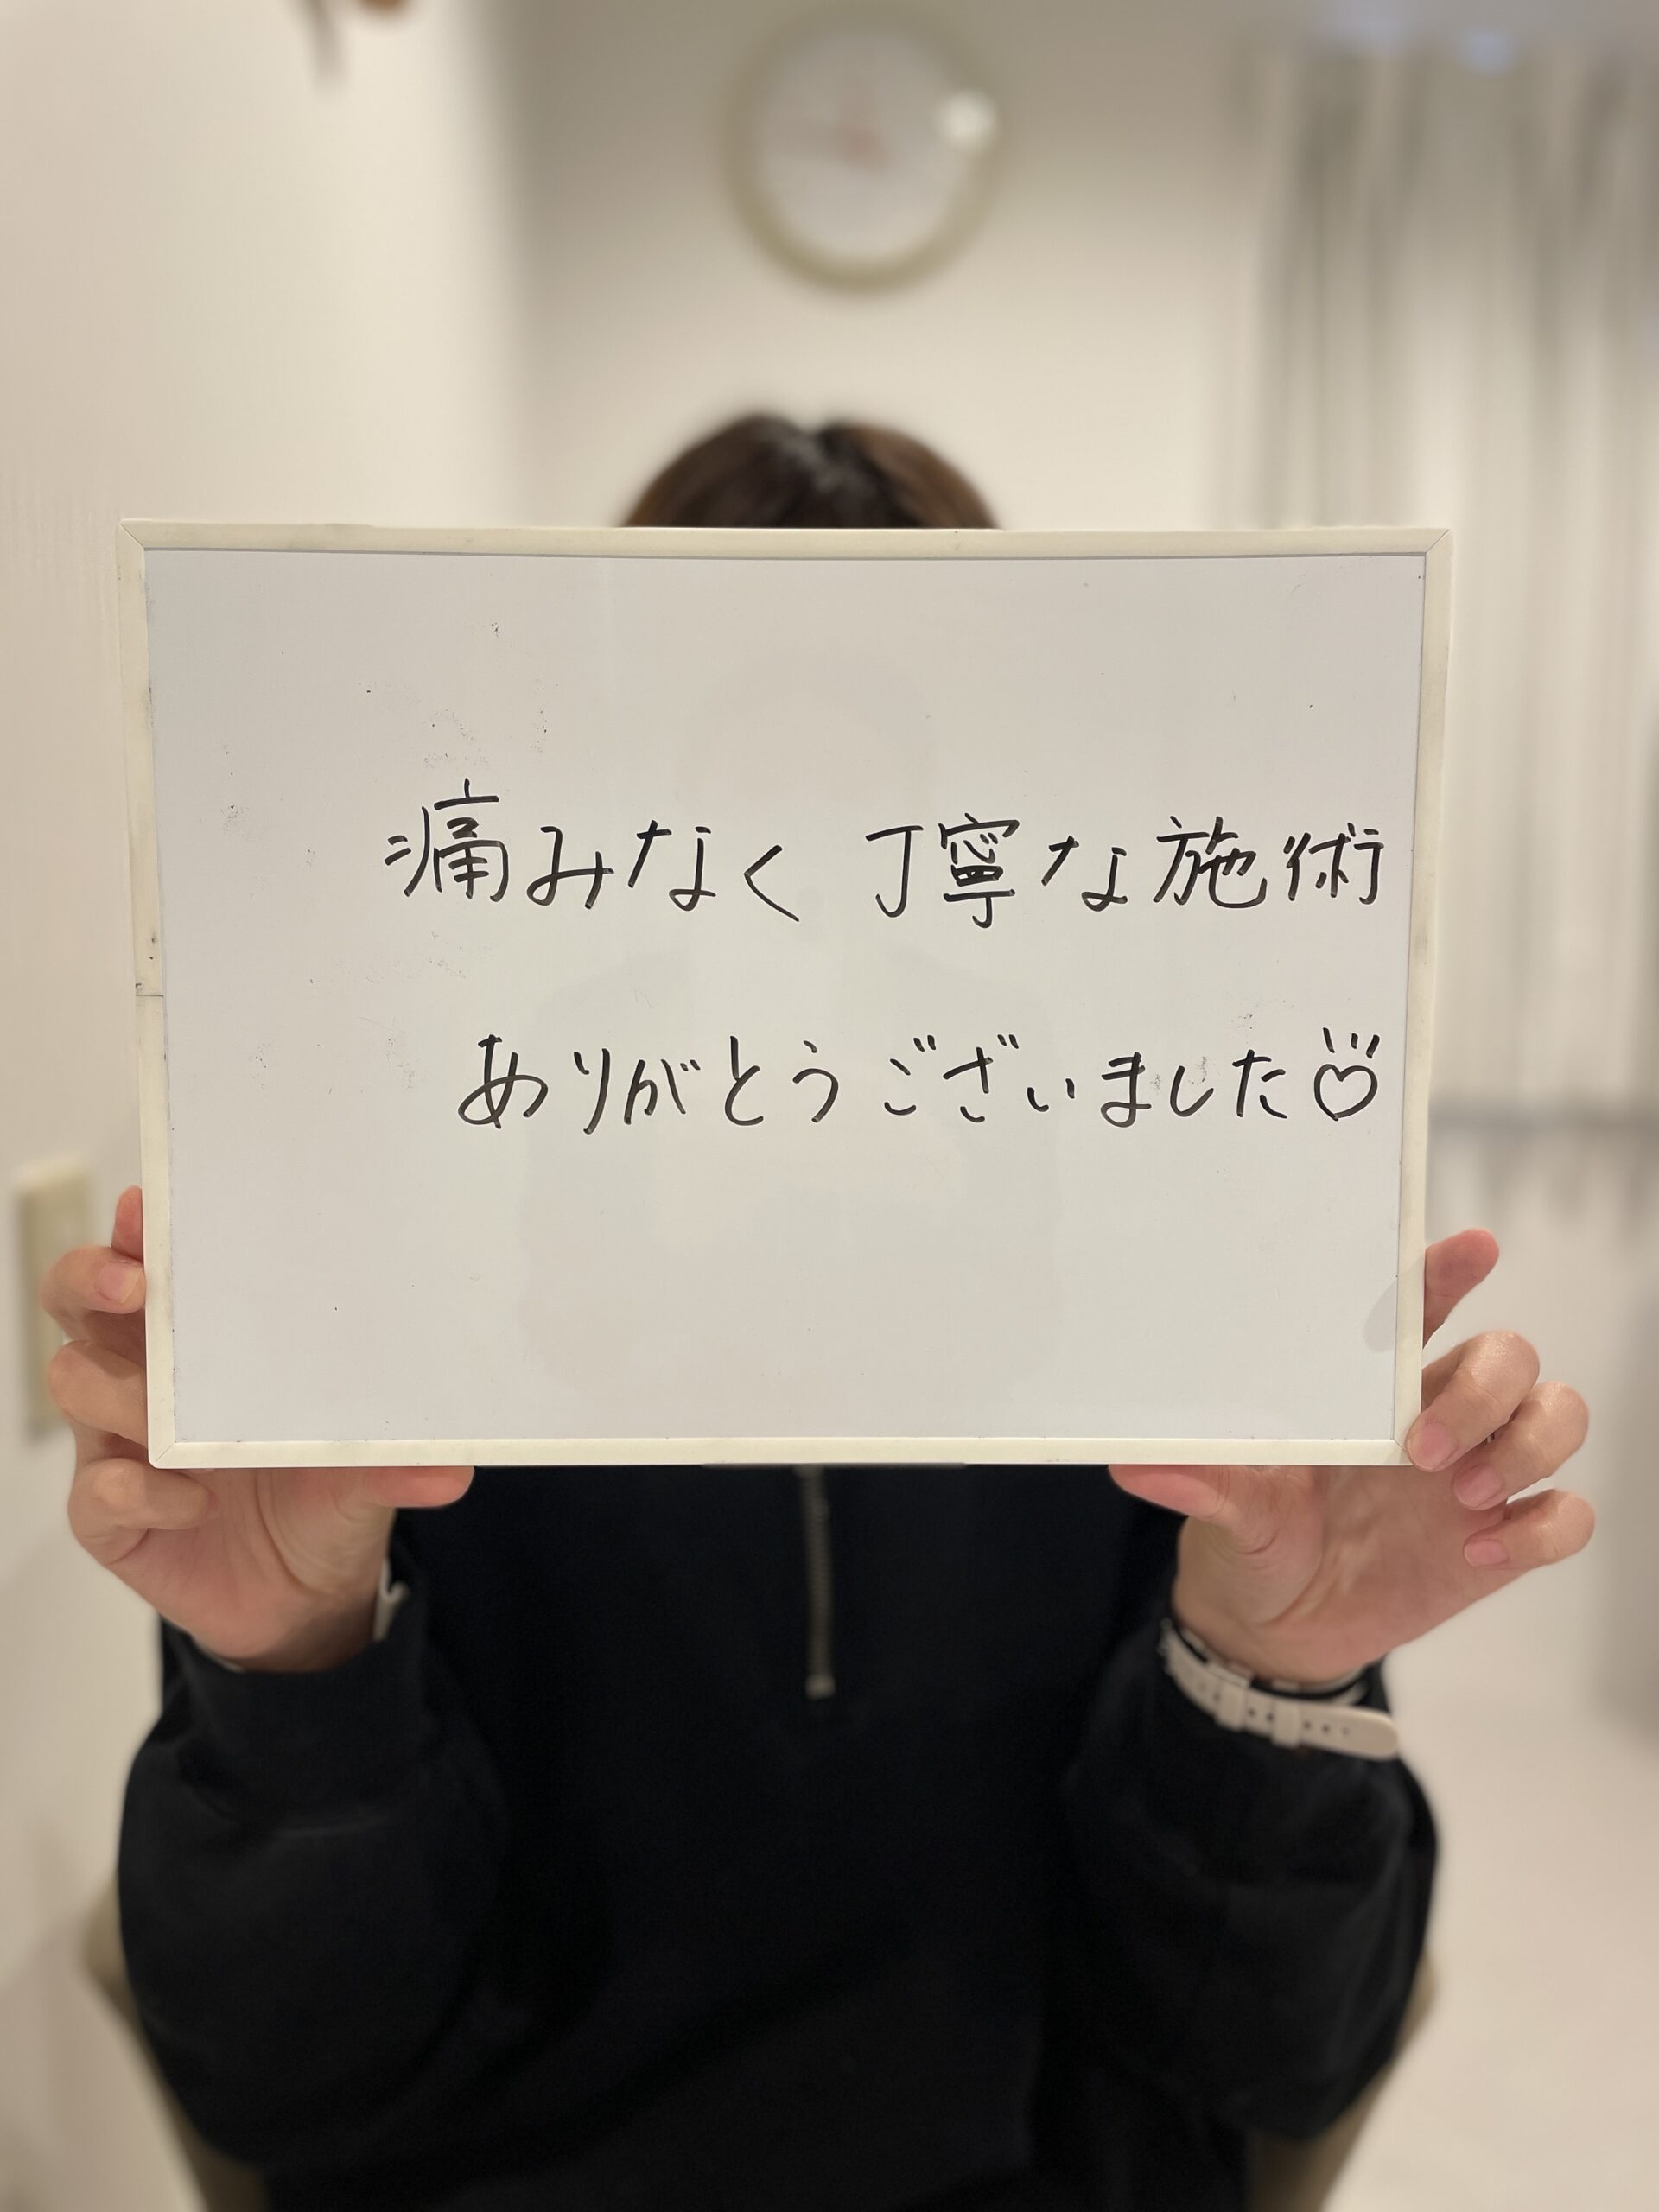 痛みなく 丁寧な施術
ありがとうございました♡